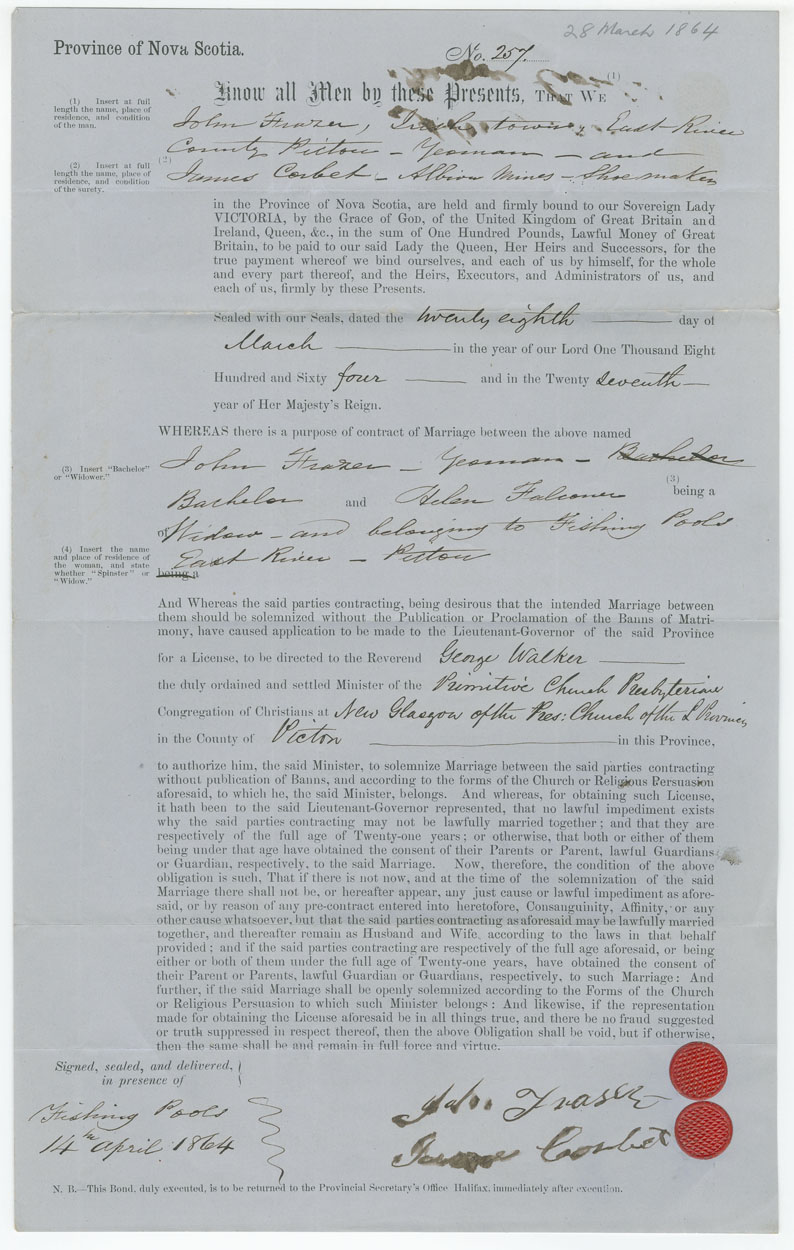 28 March 1864
Province of Nova Scotia.
No. 257
(1)
Know all Men by these Presents, THAT WE
(1) Insert at full
length the name, place of
residence, and condition
of the man.
John Frazer, East River
County Pictou – Yeoman – and
(2) Insert at full
length the name, place of
residence, and condition
of the surety.
(2)
James Corbet – Albion Mines – Shoemaker
in the Province of Nova Scotia, are held and firmly bound to our Sovereign Lady
VICTORIA, by the Grace of GOD, of the United Kingdom of Great Britain and
Ireland, Queen, &c., in the sum of One Hundred Pounds, Lawful Money of Great
Britain, to be paid to our said Lady the Queen, Her Heirs and Successors, for the
true payment whereof we bind ourselves, and each of us by himself, for the whole
and every part thereof, and the Heirs, Executors, and Administrators of us, and
each of us, firmly by these Presents.
Sealed with our Seals, dated the twenty eighth day of
March in the year of our Lord One Thousand Eight
Hundred and Sixty four and in the Twenty seventh
year of Her Majesty's Reign.
WHEREAS there is a purpose of contract of Marriage between the above named
(3) Insert "Bachelor"
or "Widower."
John Frazer – Yeoman – Bachelor
(3)
Bachelor and Helen Falconer being a
of Widow – and belonging to Fishing Pools
(4) Insert the name
and place of residence of
the woman, and state
whether "Spinster" or
"Widow."
East River – Pictou
being a
And Whereas the said parties contracting, being desirous that the intended Marriage between
them should be solemnized without the Publication or Proclamation of the Banns of Matri-
mony, have caused application to be made to the Lieutenant-Governor of the said Province
for a License, to be directed to the Reverend George Walker
the duly ordained and settled Minister of the Primitive Church Presbyterian
Congregation of Christians at New Glasgow of the Pres: Church of the L Provinces
in the County of Picton in this Province,
to authorize him, the said Minister, to solemnize Marriage between the said parties contracting
without publication of Banns, and according to the forms of the Church or Religious Persuasion
aforesaid, to which he, the said Minister, belongs. And whereas, for obtaining such License,
it hath been to the said Lieutenant-Governor represented, that no lawful impediment exists
why the said parties contracting may not be lawfully married together; and that they are
respectively of the full age of Twenty-one years; or otherwise, that both or either of them
being under that age have obtained the consent of their Parents or Parent, lawful Guardians
or Guardian, respectively, to the said Marriage. Now, therefore, the condition of the above
obligation is such, That if there is not now, and at the time of the solemnization of the said
Marriage there shall not be, or hereafter appear, any just cause or lawful impediment as afore-
said, or by reason of any pre-contract entered into heretofore, Consanguinity, Affinity, or any
other cause whatsoever, but that the said parties contracting as aforesaid may be lawfully married
together, and thereafter remain as Husband and Wife, according to the laws in that behalf
provided; and if the said parties contracting are respectively of the full age aforesaid, or being
either or both of them under the full age of Twenty-one years, have obtained the consent of
their Parent or Parents, lawful Guardian or Guardians, respectively, to such Marriage: And
further, if the said Marriage shall be openly solemnized according to the Forms of the Church
or Religious Persuasion to which such Minister belongs: And likewise, if the representation
made for obtaining the License aforesaid be in all things true, and there be no fraud suggested
or truth suppressed in respect thereof, then the above Obligation shall be void, but if otherwise,
then the same shall be and remain in full force and virtue.
Signed, sealed, and delivered,
in presence of
Fishing Pools
14th April 1864
John Fraser
James Corbet
N. B.—This Bond, duly executed, is to be returned to the Provincial Secretary's Office Halifax, immediately after execution.